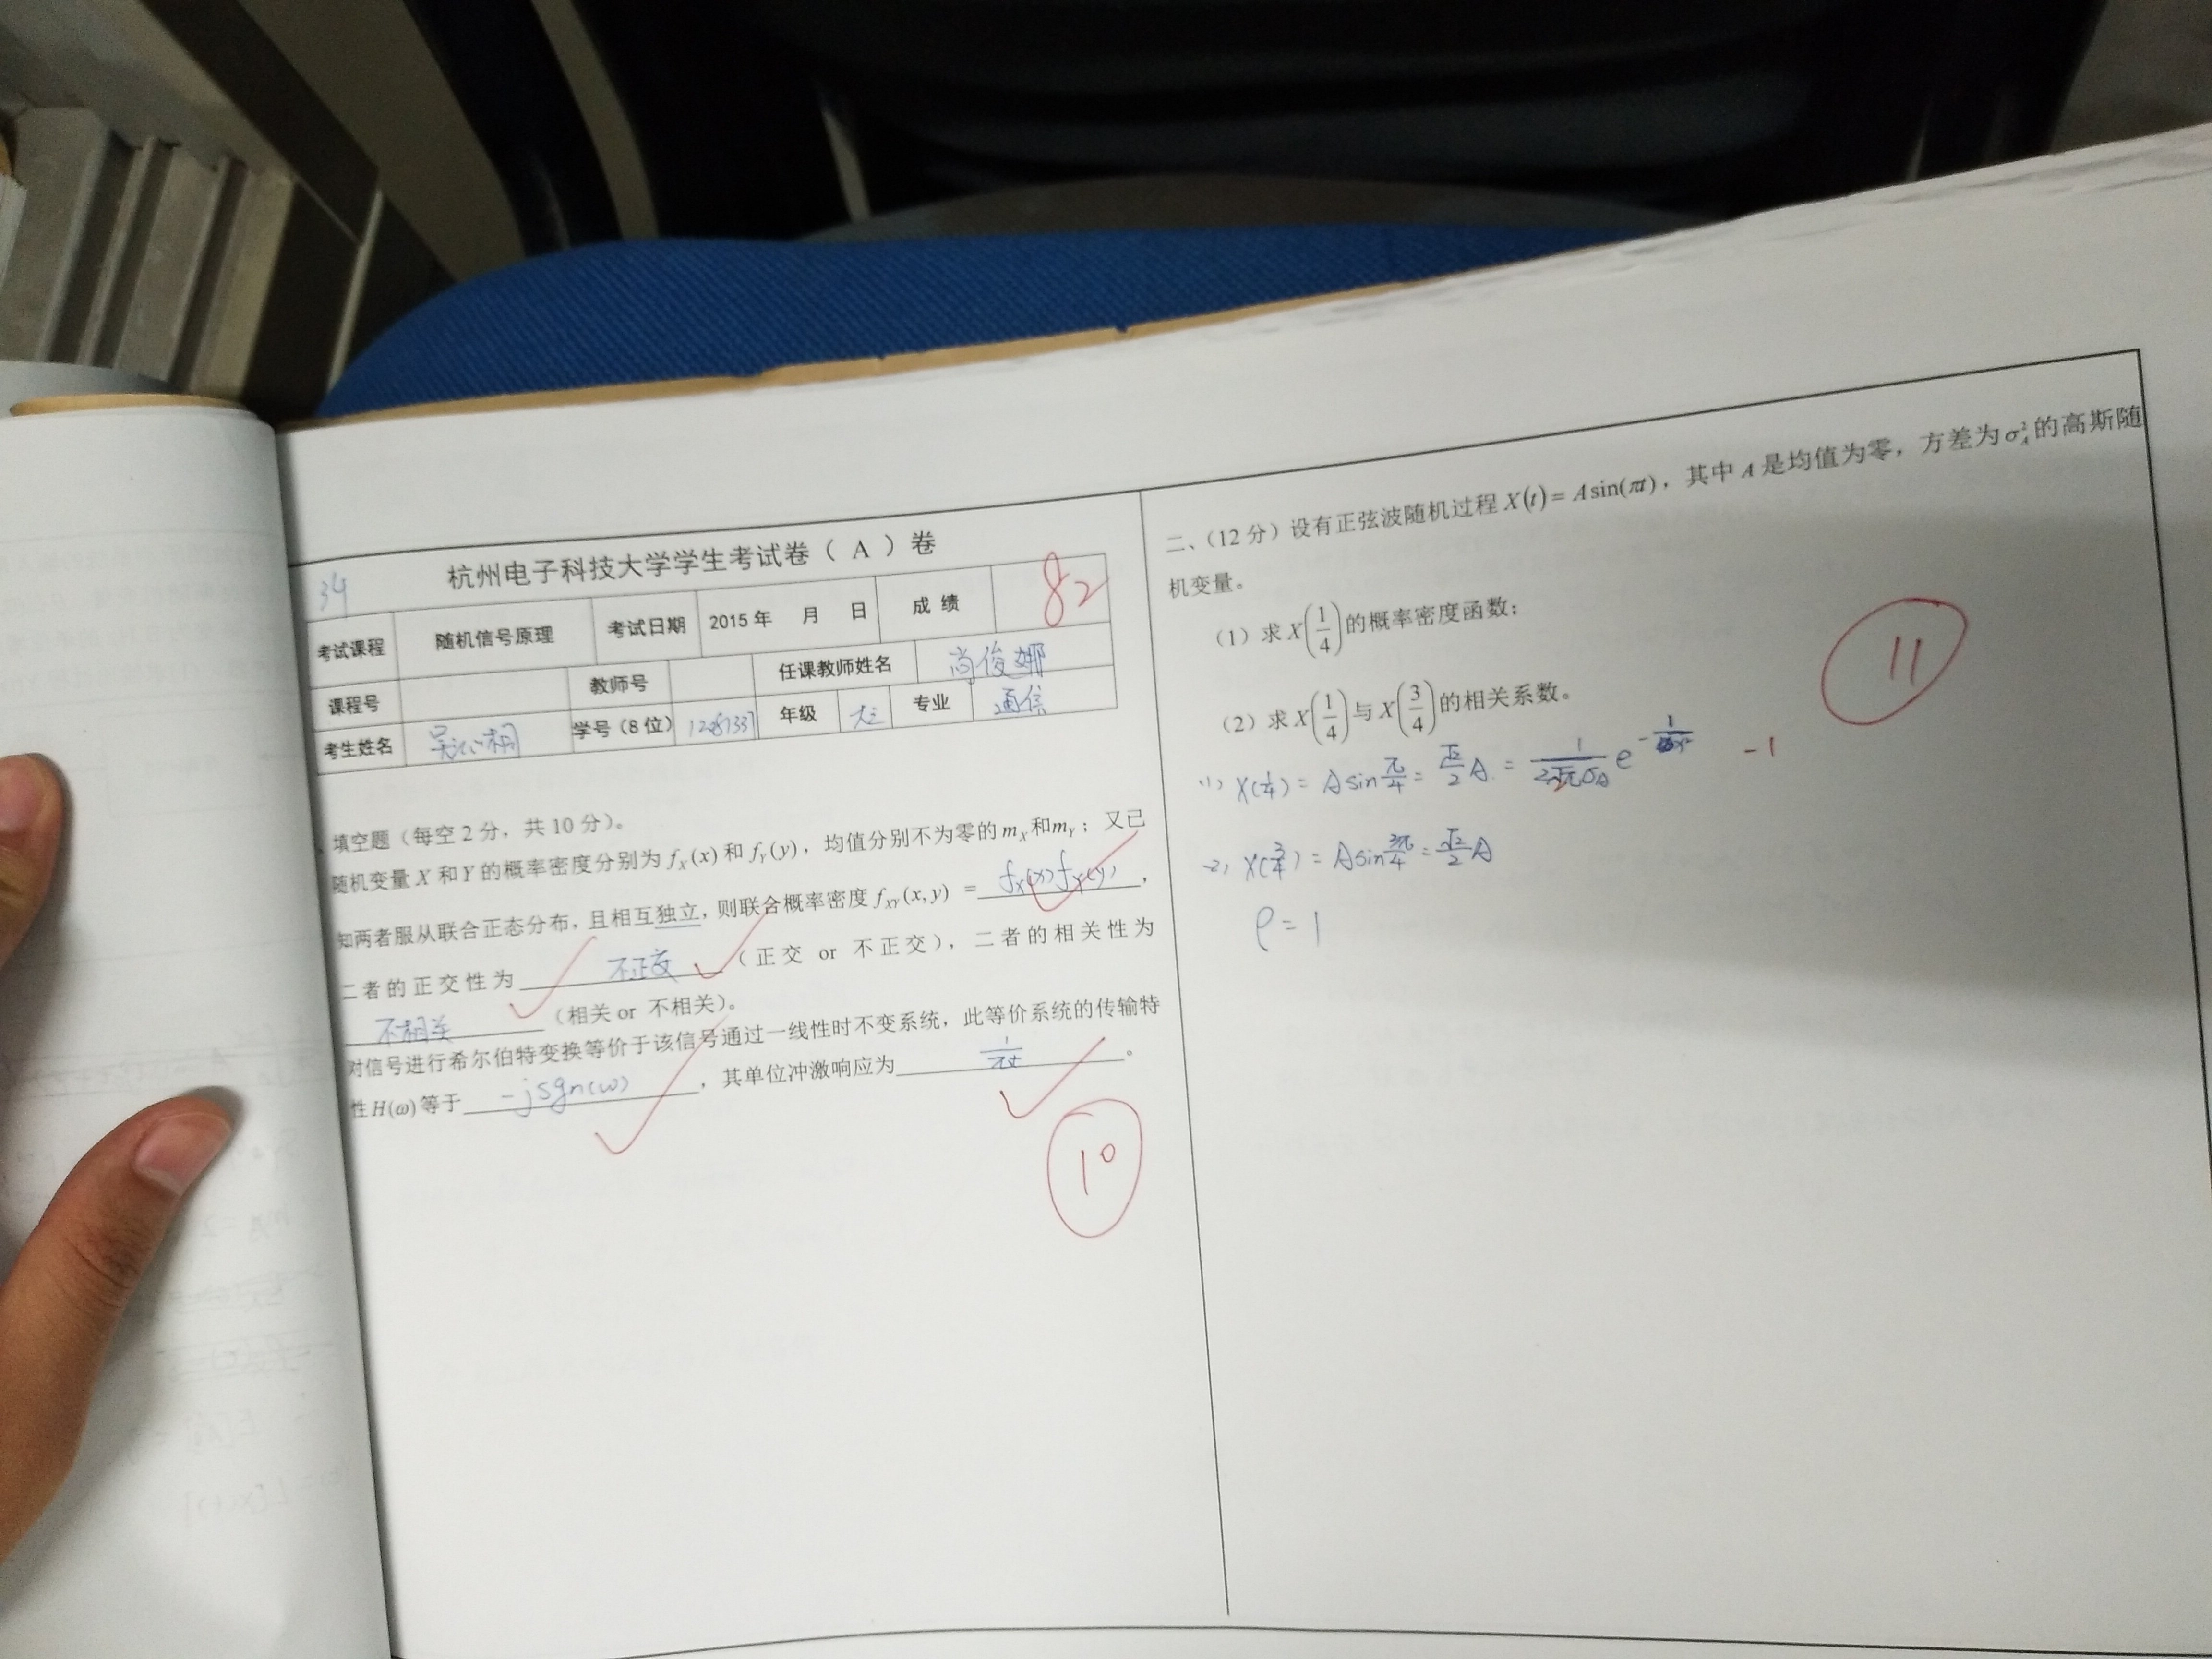 34
杭州电子科技大学学生考试卷（ A ）卷
考试课程 随机信号原理 考试日期 2015年 月 日 成绩 82
课程号 教师号 任课教师姓名 尚俊娜
考生姓名 学号（8位） 年级 大三 专业 通信
填空题（每空2分，共10分）。
随机变量X和Y的概率密度分别为f_X(x)和f_Y(y)，均值分别不为零的m_X和m_Y；又已
知两者服从联合正态分布，且相互独立，则联合概率密度f_XY(x,y) = f_X(x)f_Y(y)，
二者的正交性为 不正交 （正交 or 不正交），二者的相关性为
不相关 （相关or 不相关）。
对信号进行希尔伯特变换等价于该信号通过一线性时不变系统，此等价系统的传输特
性H(ω)等于 -jsgn(ω) ，其单位冲激响应为 1/πt 。
10
二、（12分）设有正弦波随机过程X(t)=Asin(πt)，其中A是均值为零，方差为σ_A²的高斯随
机变量。
（1）求X(1/4)的概率密度函数；
11
（2）求X(1/4)与X(3/4)的相关系数。
(1) X(1/4) = Asin π/4 = √2/2 A = -1
(2) X(3/4) = Asin 3π/4 = √2/2 A
ρ = 1